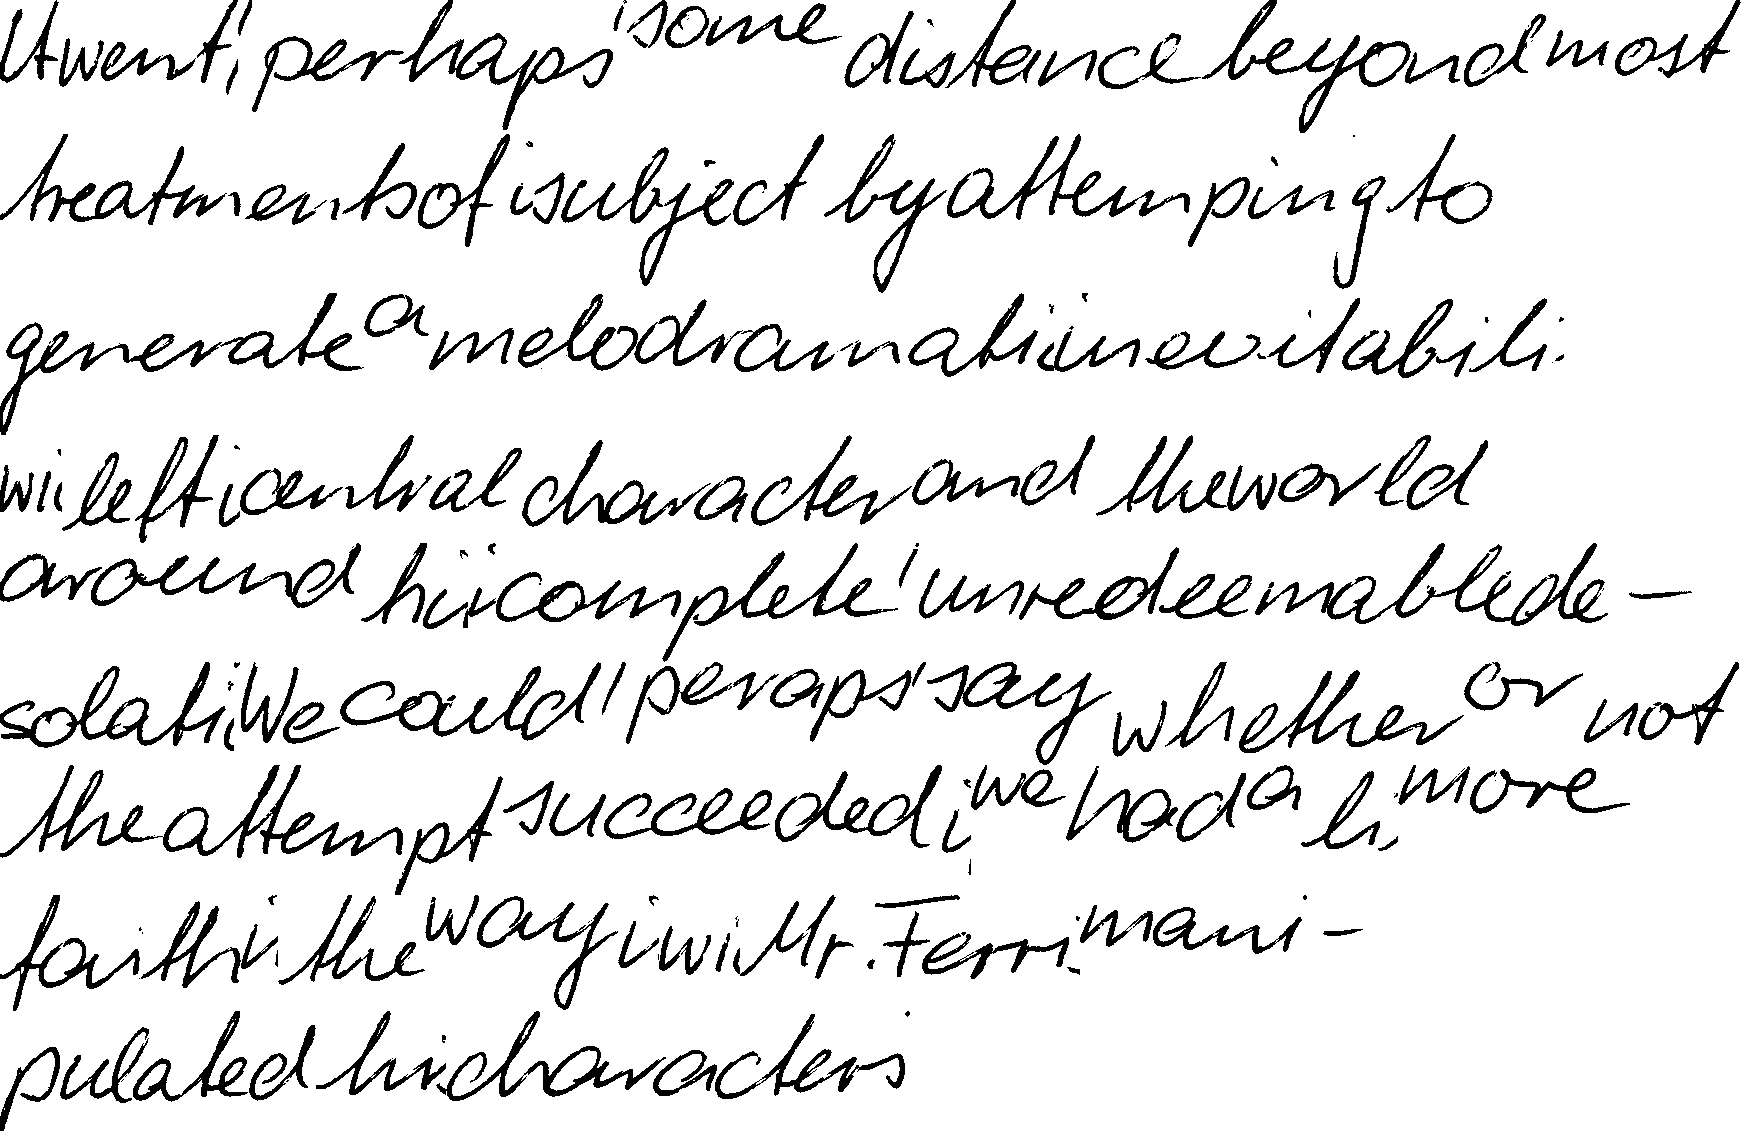 It went, perhaps, some distance beyond most
treatments of subject by attemping to
generate a melodramati inevitabili
wi left central character and the world
around hi complete, unredeemable de-
solati We could, peraps, say whether or not
the attempt succeeded, we had a li more
faith i the way i wi Mr. Ferri mani-
pulated hi characters